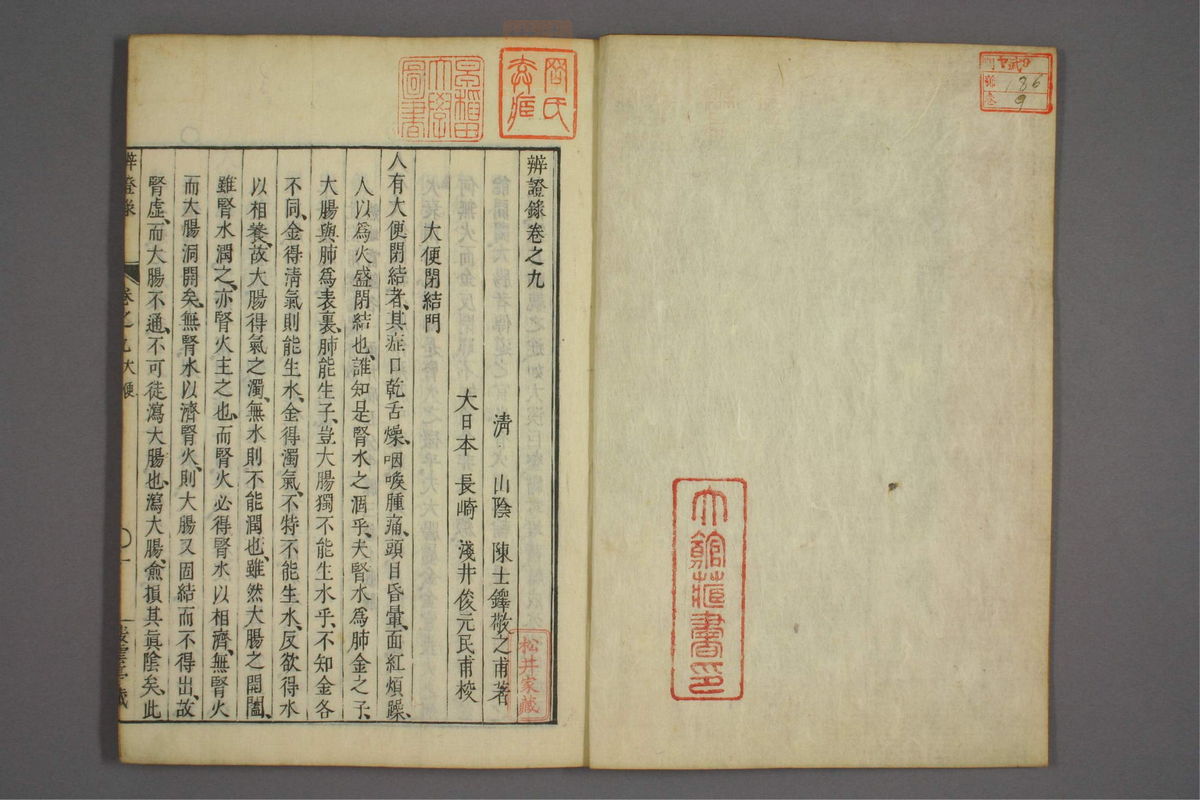 辨證錄卷之九
清 山陰 陳士鐸敬之甫著
大日本 長崎 淺井俊元民甫校
大便閉結門
人有大便閉結者、其症口乾舌燥、咽喉腫痛、頭目昏暈、面紅煩躁、
人以爲火盛閉結也、誰知是腎水之涸乎、夫腎水爲肺金之子、
大腸與肺爲表裏、肺能生子、豈大腸獨不能生水乎、不知金各
不同、金得清氣則能生水、金得濁氣、不特不能生水、反欲得水
以相養、故大腸得氣之濁、無水則不能潤也、雖然大腸之開闔、
雖腎水潤之、亦腎火主之也、而腎火必得腎水以相濟、無腎火
而大腸洞開矣、無腎水以濟腎火、則大腸又固結而不得出、故
腎虛、而大腸不通、不可徒瀉大腸也、瀉大腸、愈損其眞陰矣、此
辨證錄
卷之九 大便
一
松井家藏
早稻田
大學
圖書
大館藏書印
186
9